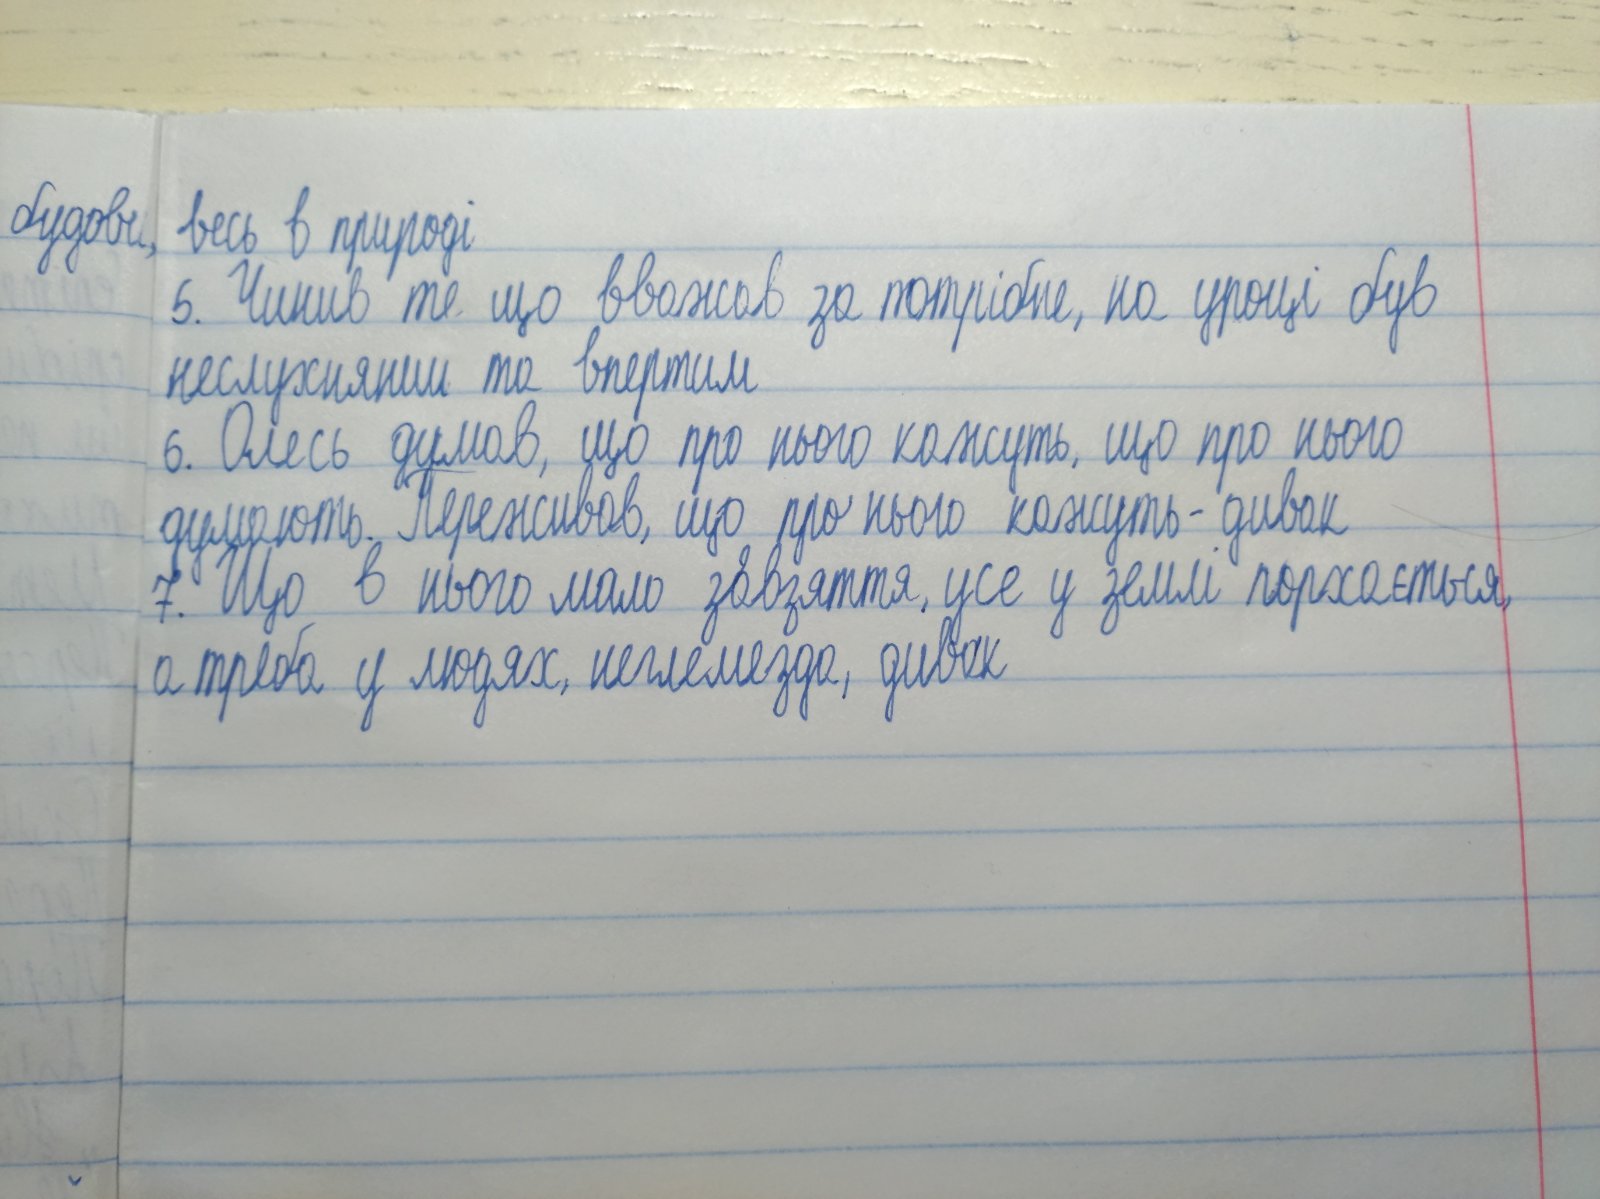 будови, весь в природі
5. Чинив те що вважав за потрібне, на уроці був
неслухняним та впертим
6. Олесь думав, що про нього кажуть, що про нього
думають. Переживав, що про нього кажуть - дивак
7. Що в нього мало завзяття, усе у землі порхається,
а треба у людях, неглемезда, дивак